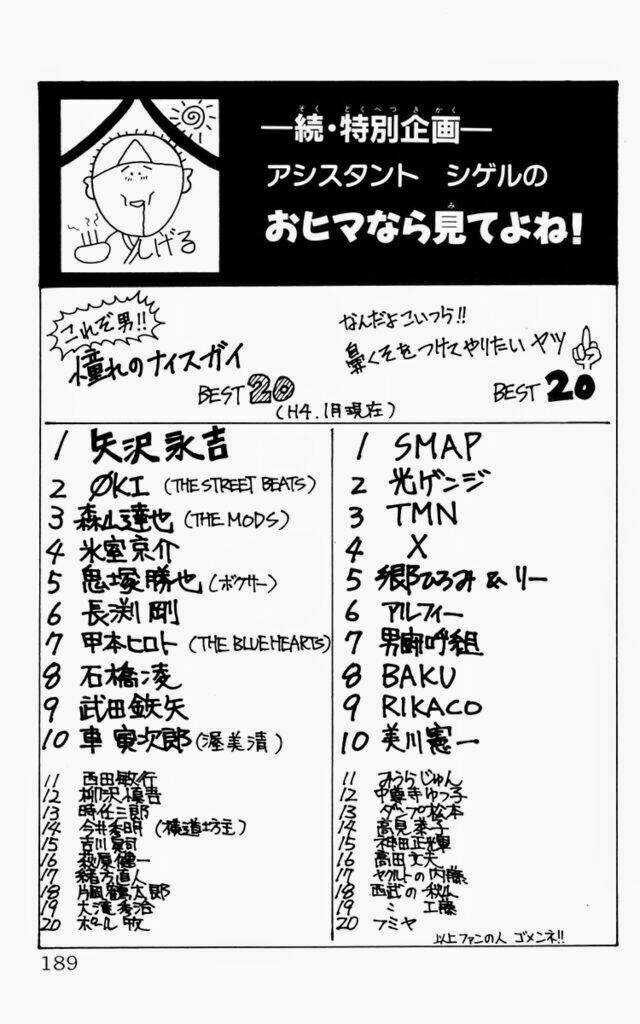 ―続・特別企画―
アシスタント シゲルの
おヒマなら見てよね!
しげる
これぞ男!!
憧れのナイスガイ
BEST 20
なんだよこいつら!!
鼻くそをつけてやりたいヤツ
BEST 20
(H4.1月現在)
1 矢沢永吉
2 ØKI (THE STREET BEATS)
3 森山達也 (THE MODS)
4 氷室京介
5 鬼塚勝也 (ボクサー)
6 長渕剛
7 甲本ヒロト (THE BLUE HEARTS)
8 石橋凌
9 武田鉄矢
10 車寅次郎 (渥美清)
11 西田敏行
12 柳沢慎吾
13 時任三郎
14 今井秀明 (横道坊主)
15 吉川晃司
16 萩原健一
17 緒方直人
18 片岡鶴太郎
19 大滝秀治
20 ポール牧
1 SMAP
2 光ゲンジ
3 TMN
4 X
5 郷ひろみ & リー
6 アルフィー
7 男闘呼組
8 BAKU
9 RIKACO
10 美川憲一
11 みうらじゅん
12 中尊寺ゆつ子
13 ダンプ松本
14 高見恭子
15 神田正輝
16 高田文夫
17 ヤクルトの内藤
18 西武の秋山
19 〃 工藤
20 フミヤ
以上ファンの人 ゴメンネ!!
189